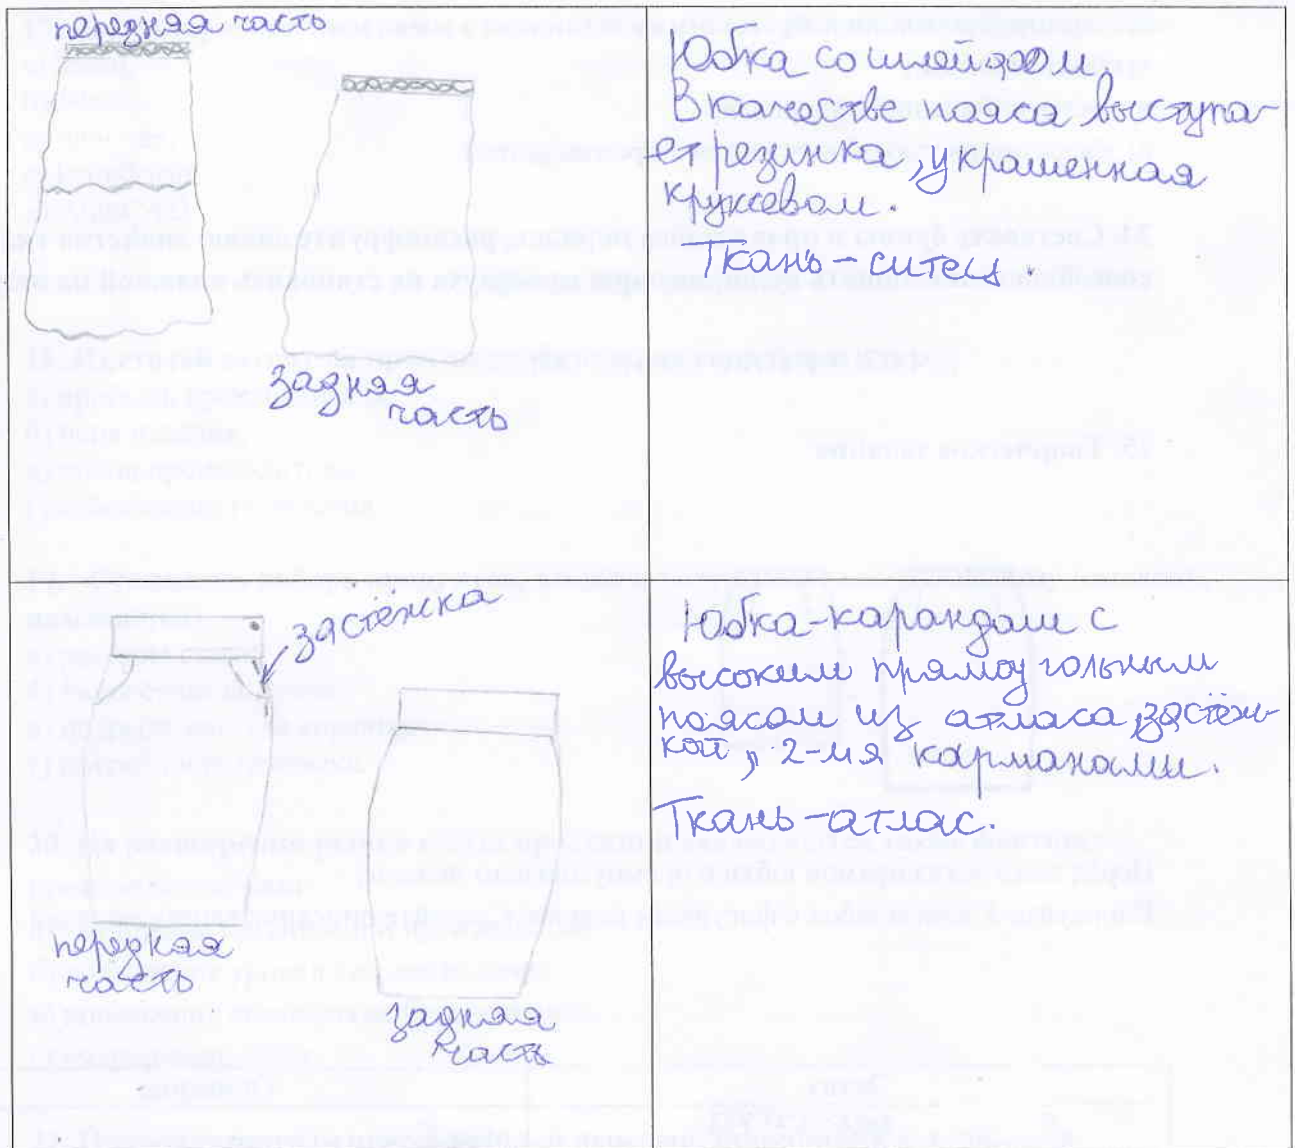 передняя часть
задняя
часть
Юбка со шлейфом.
В качестве пояса выступа-
ет резинка, украшенная
кружевом.
Ткань-ситец.
застёжка
передняя
часть
задняя
часть
Юбка-карандаш с
высоким прямоугольным
поясом из атласа, застёж-
кой, 2-мя карманами.
Ткань-атлас.